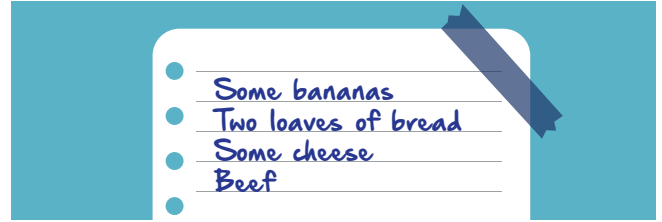 Some bananas
Two loaves of bread
Some cheese
Beef